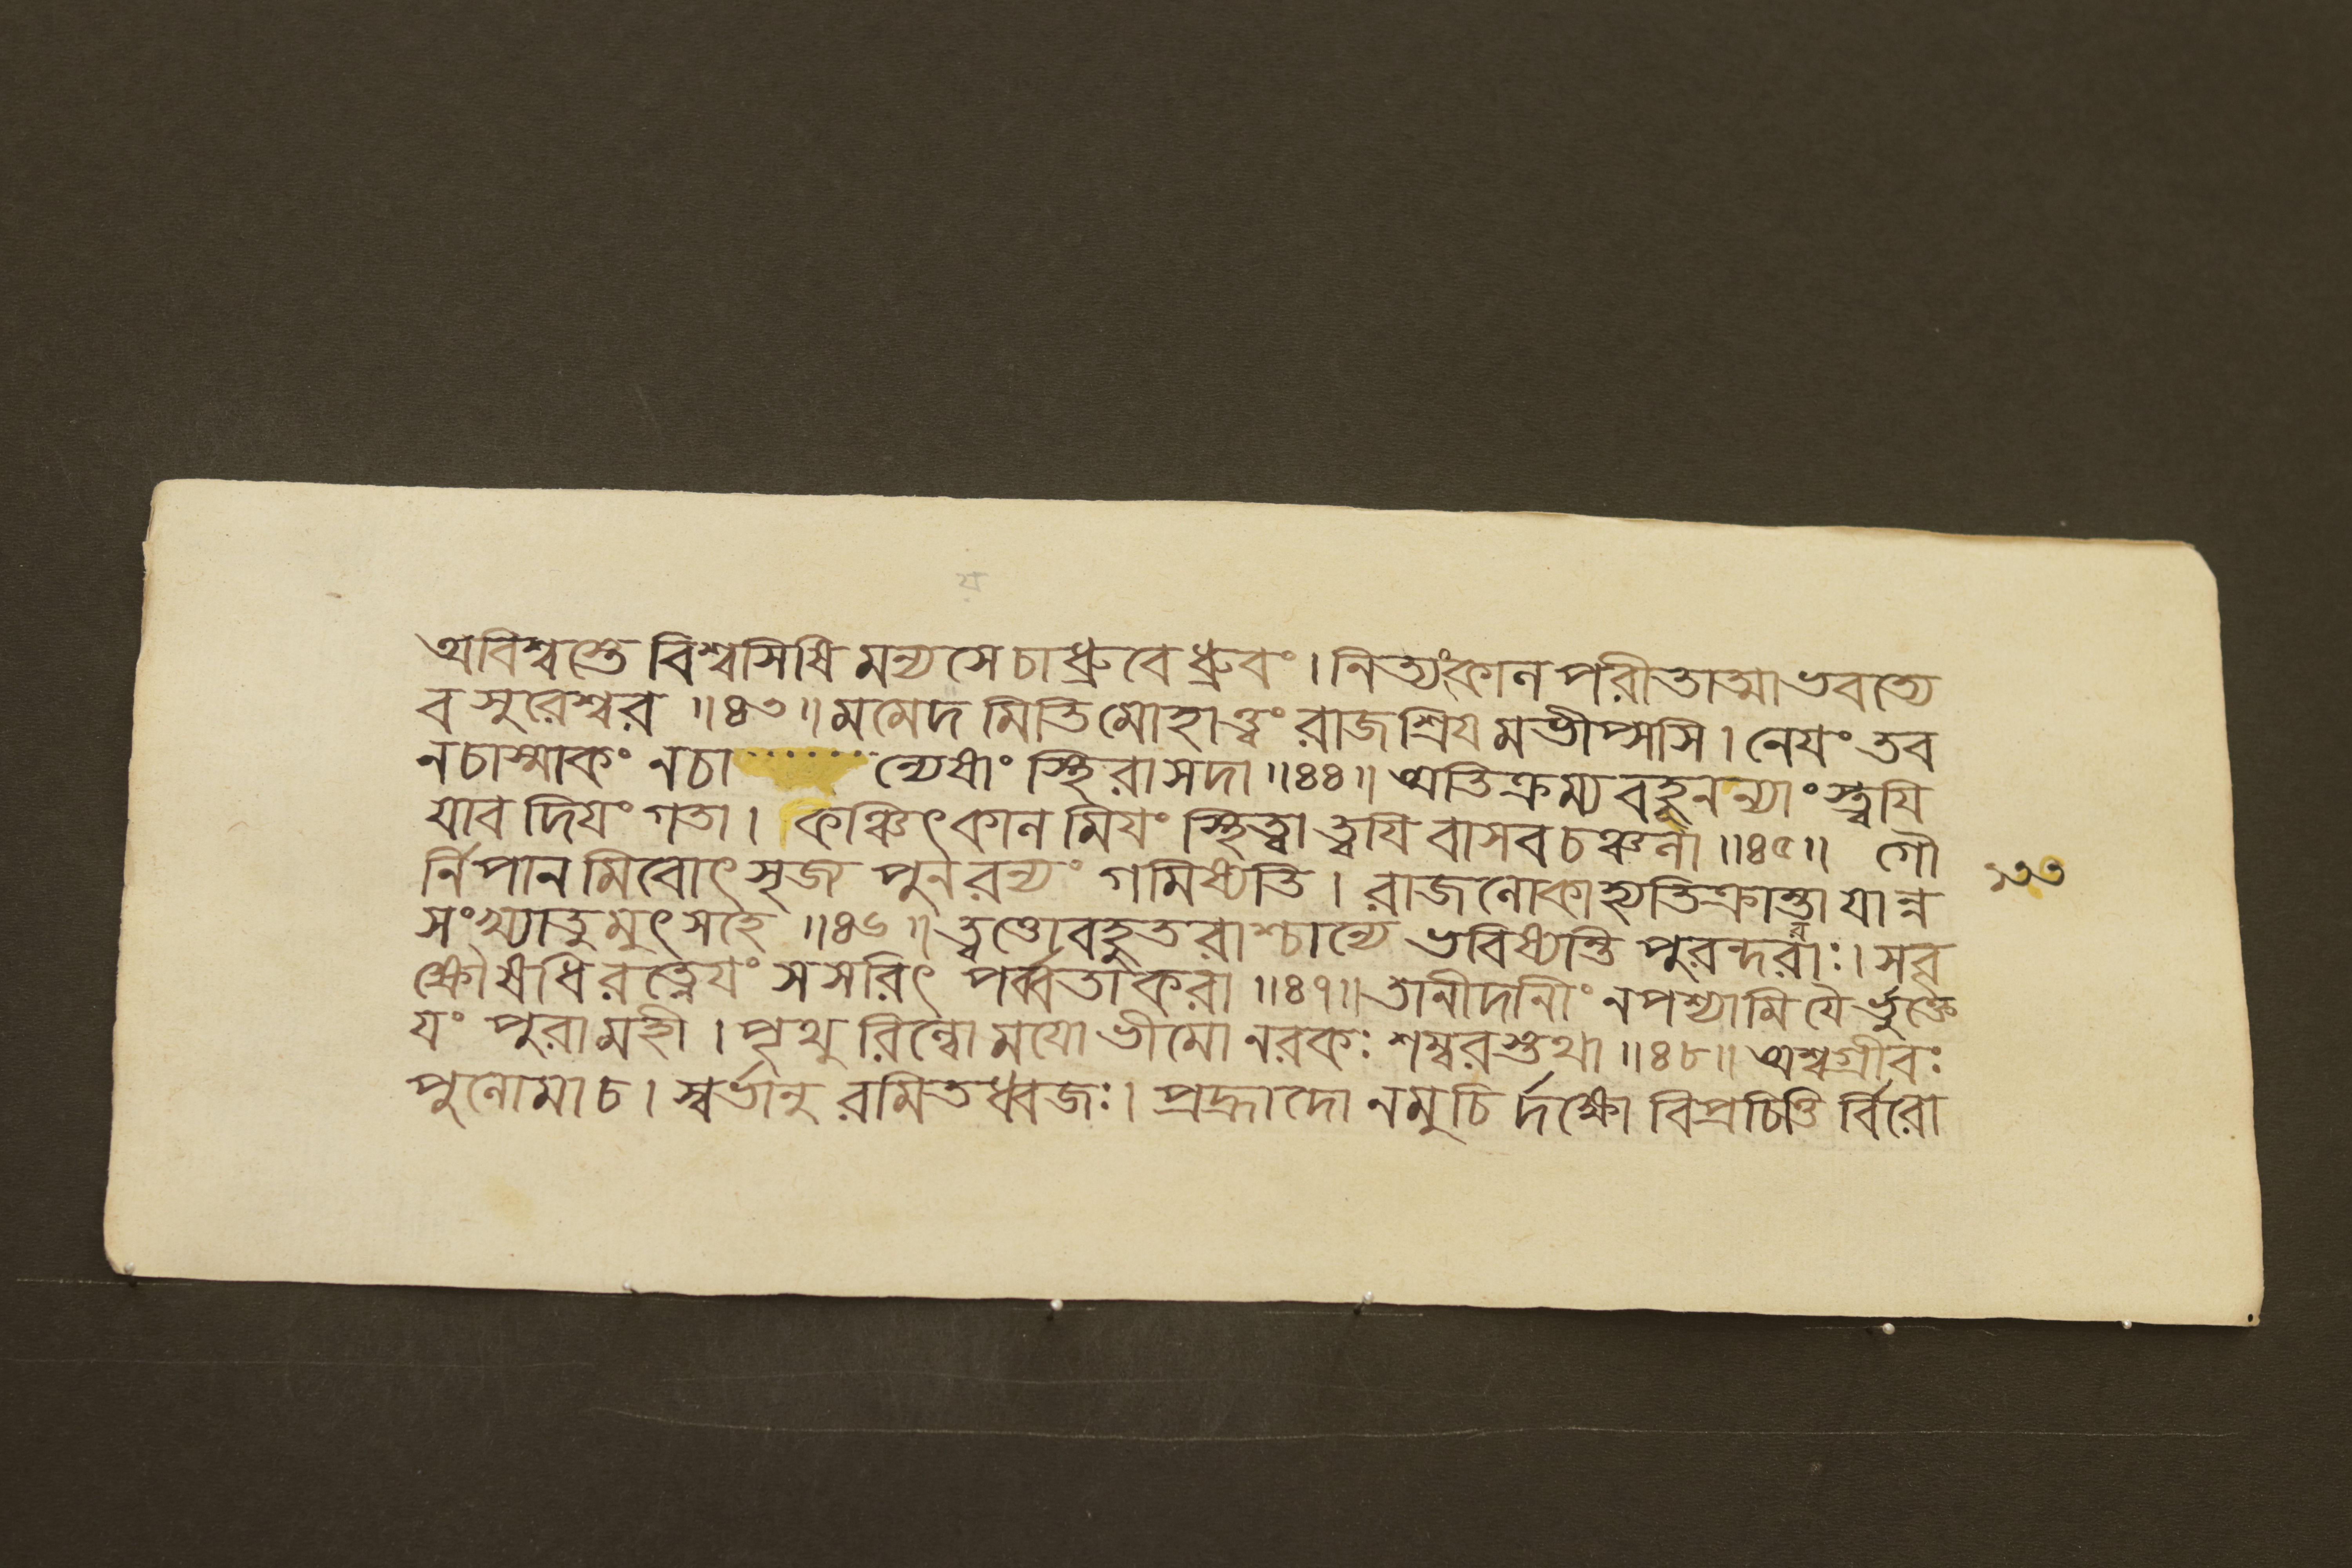 অবিশ্বস্তে বিশ্বসিষি মন্যসে চাধ্রুবে ধ্রুবং । নিত্যংকাল পরীতাত্মা ভবত্যে
ব সুরেশ্বর ॥৪৩॥ মমেদ মিতি মোহাত্ত্বং রাজশ্রিযমভীপ্সসি । নেযং তব
নচাস্মাকং নচা ন্যেষাং স্থিরা সদা ॥৪৪॥ অতিক্রম্য বহূনন্যাংস্ত্বযি
যাবদিযং গতা । কঞ্চিৎকাল মিযং স্থিত্বা ত্বযি বাসব চঞ্চলা ॥৪৫॥ গৌ
র্নিপান মিবোৎসৃজ্য পুনরন্যং গমিষ্যতি । রাজলোকাহ্যতিক্রান্তা যান্ন
১৩৩
সংখ্যাতুমুৎসহে ॥৪৬॥ ত্বত্তোবহুতরাশ্চান্যে ভবিষ্যন্তি পুরন্দরাঃ । সবৃ
ক্ষৌষধিরত্নেযং সসরিৎ পর্ব্বতাকরা ॥৪৭॥ তানীদানীং নপশ্যামি যৈর্ভুক্তে
যং পুরা মহী । পৃথু রিন্বোমযোভীমো নরকঃ শম্বরস্তথা ॥৪৮॥ অশ্বগ্রীবঃ
পুলোমা চ । স্বর্ভানু রমিতধ্বজঃ । প্রহ্লাদো নমুচির্দক্ষো বিপ্রচিত্তির্বিরো